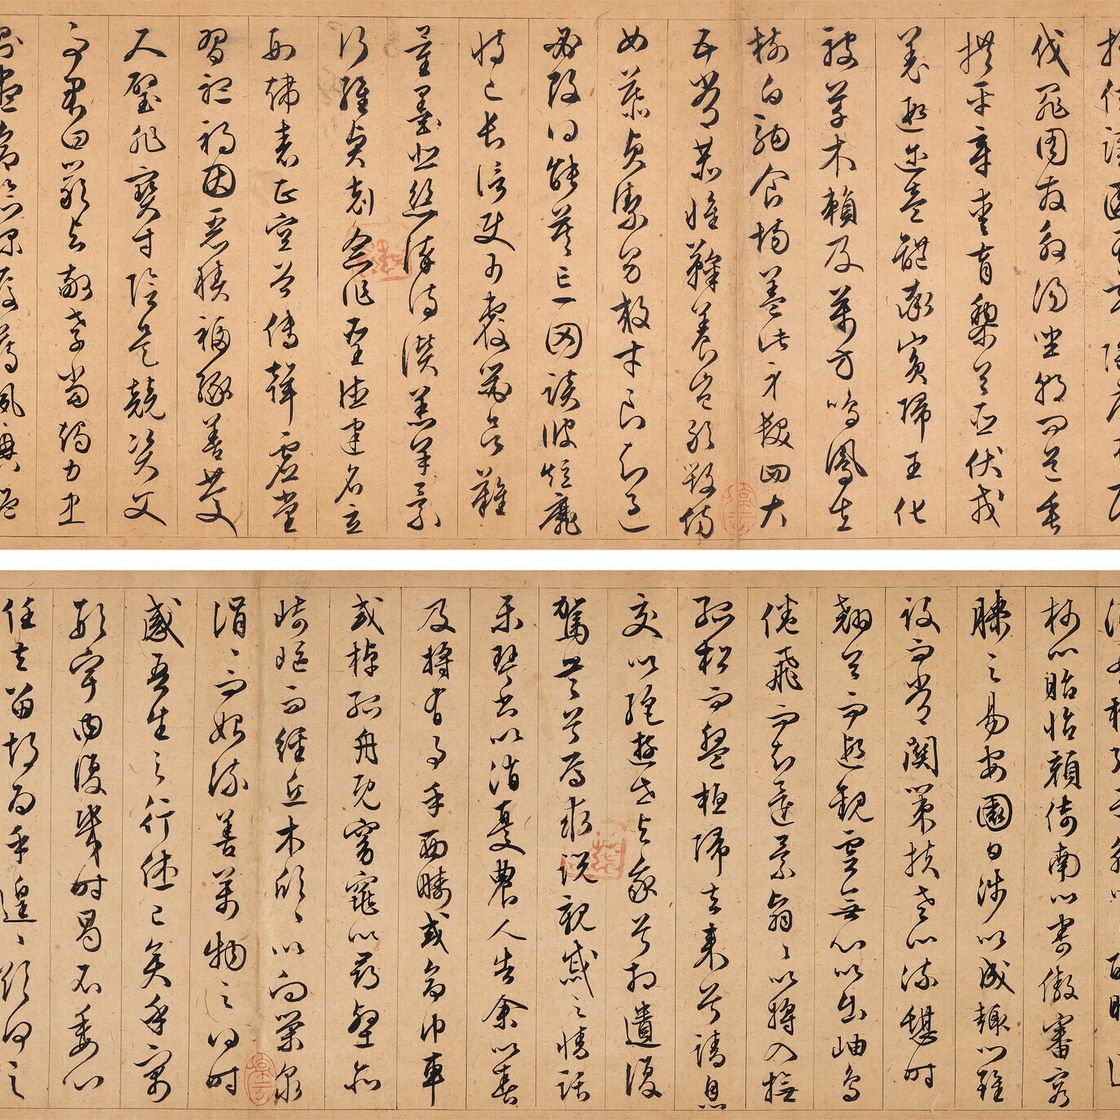 伐罪周發殷湯坐朝問道垂
拱平章愛育黎首臣伏戎
羌遐迩壹體率賓歸王化
被草木賴及萬方鳴鳳在
樹白駒食場蓋此身髮四大
五常恭惟鞠養豈敢毀傷
女慕貞潔男效才良知過
必改得能莫忘罔談彼短靡
恃己長信使可覆器欲難
量墨悲絲淬詩讚羔羊景
行維賢剋念作聖德建名立
形端表正空谷傳聲虛堂
習聽禍因惡積福緣善慶
尺璧非寶寸陰是競資父
事君曰嚴與敬孝當竭力忠
則盡命臨深履薄夙興溫
柯以眙怡顏倚南以寄傲審容
膝之易安園日涉以成趣門雖
設而常關策扶老以流憩時
翹首而遐觀雲無心以出岫鳥
倦飛而知還景翳〻以將入撫
孤松而盤桓歸去來兮請息
交以絕遊世與我兮相遺復
駕言兮焉求悅親戚之情話
樂琴書以消憂農人告余以春
及將有事乎西疇或命巾車
或棹孤舟既窈窕以尋壑亦
崎嶇而經丘木欣〻以向榮泉
涓〻而始流善萬物之得時
感吾生之行休已矣乎寓
形宇內復幾時曷不委心
任去留胡為乎遑〻欲何之